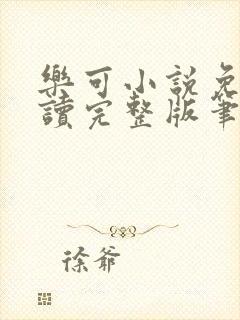 樂可小說免
讀完整版筆
徐爺